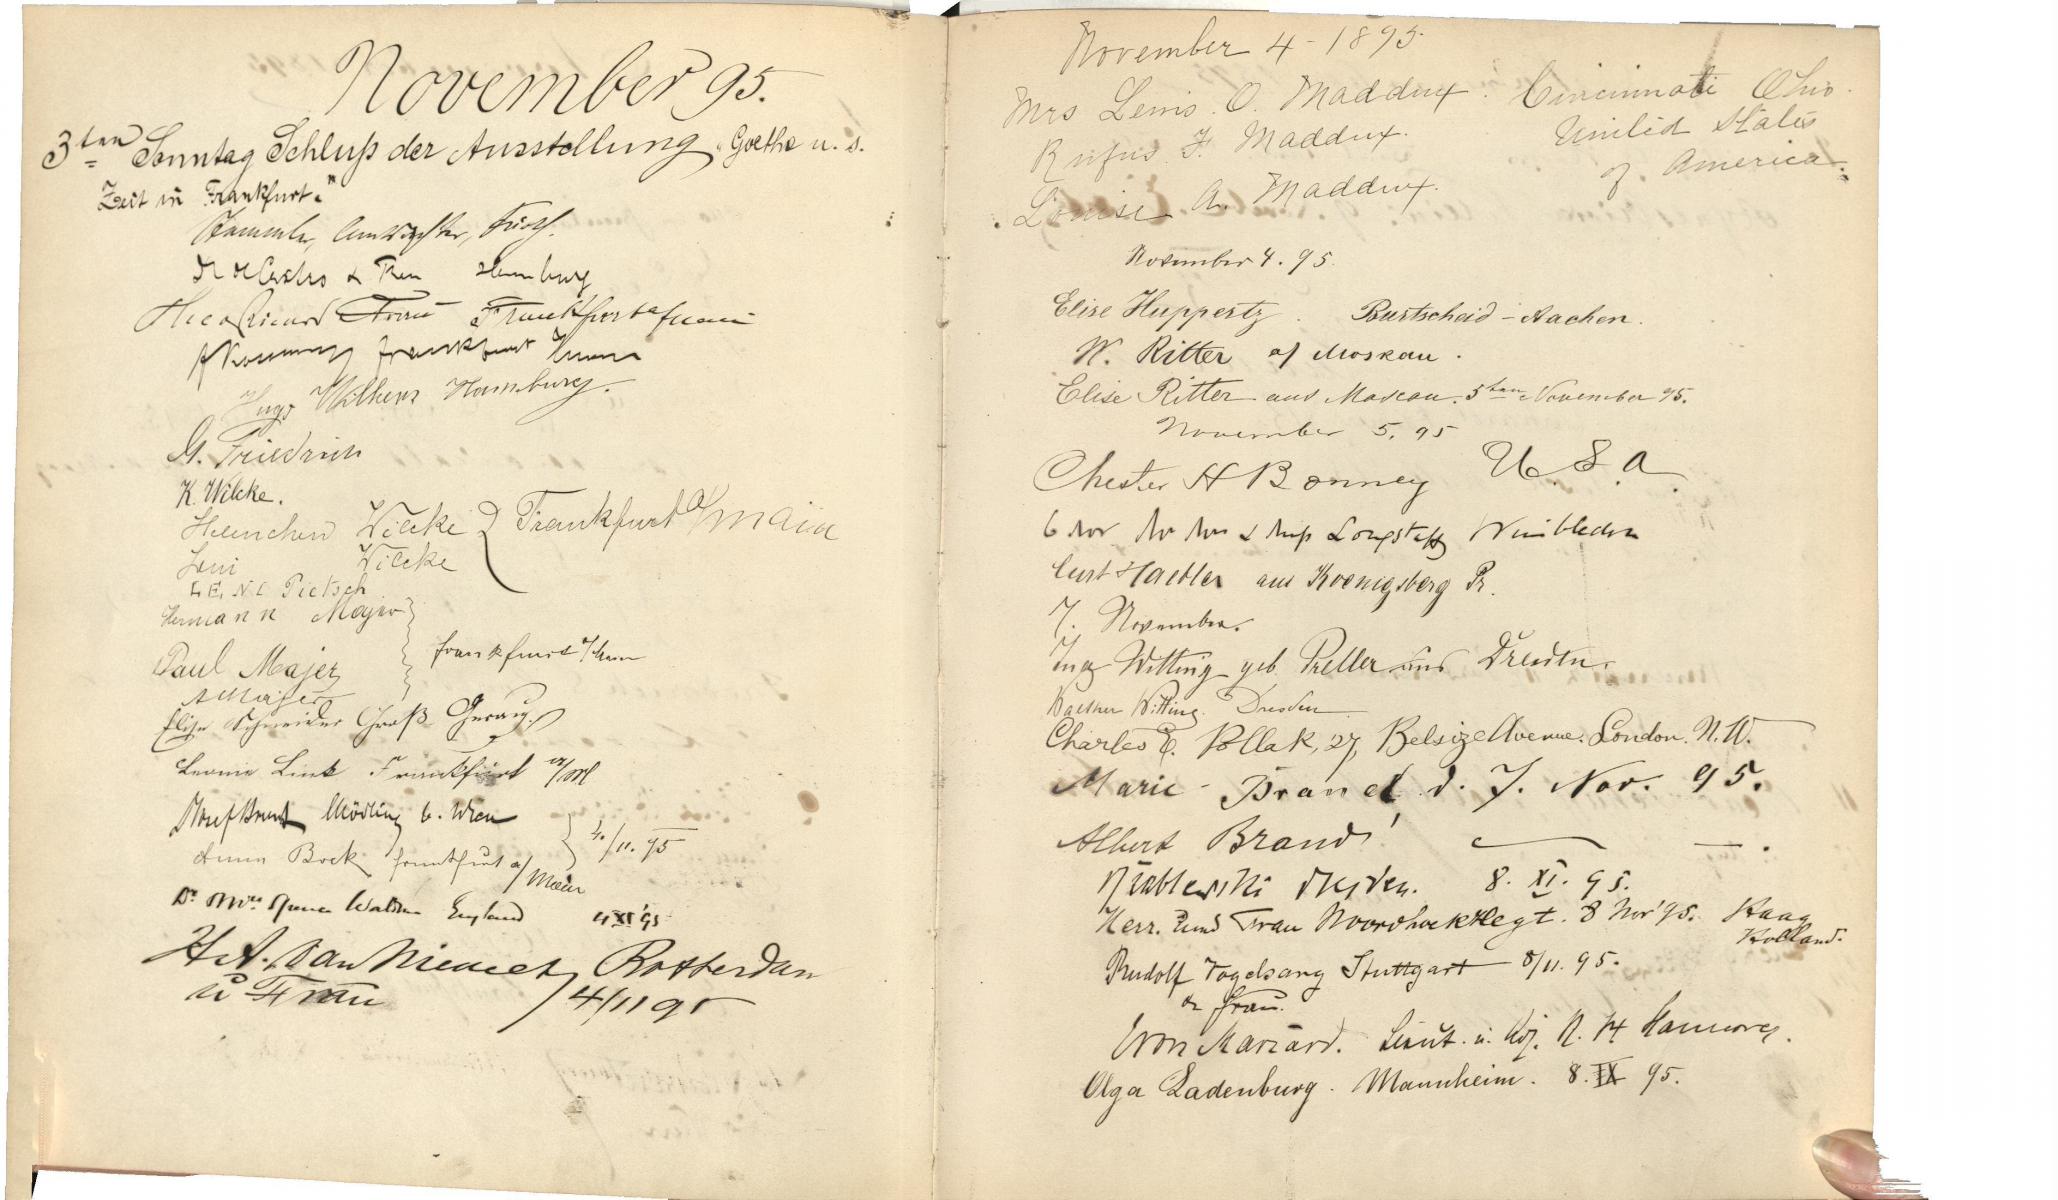 November 95.
3ten Sonntag Schluß der Ausstellung „Goethe u. s.
Zeit in Frankfurt."
Hamburg
Frau Frankfurt a/Main
Frankfurt
Hugo Wilkens Hamburg.
G. Friedrich
K. Wilcke.
Heinchen Wilcke Frankfurt a/Main
Leni Wilcke
LENI Pietsch
Hermann Majer
Paul Majer Frankfurt a/Main
A Majer
Elise Schneider Groß Gerau
Leonie Link Frankfurt a/M
Mödling b. Wien
Anna Bock Frankfurt a/Main 4./11. 95
England 4 XI 95
H. A. van Rotterdam
u Frau 4/11 95
November 4 - 1895
Mrs Lewis O. Maddux. Cincinnati Ohio.
Rufus F. Maddux. United States
Louise A. Maddux. of America.
November 4. 95.
Elise Huppertz. Burtscheid - Aachen.
W. Ritter of Moskau.
Elise Ritter aus Moscau. 5ten November 95.
November 5, 95
Chester H Bonney U. S. A.
6 Nov & Miss Longstaff Wimbledon
Curt Haedler aus Koenigsberg Pr.
7. November.
Witting geb. Preller aus Dresden.
Walther Witting. Dresden
Charles E. Pollak, 27, Belsize Avenue. London. N.W.
Marie Brandt d. 7. Nov. 95.
Albert Brandt — .
8. XI. 95.
Herr. und Frau Noordhoek Hegt. 8 Nov '95. Haag
Holland.
Rudolf Vogelsang Stuttgart 8/11. 95.
u Frau.
Lieut. u. Adj. Hannover.
Olga Ladenburg. Mannheim. 8. IX 95.